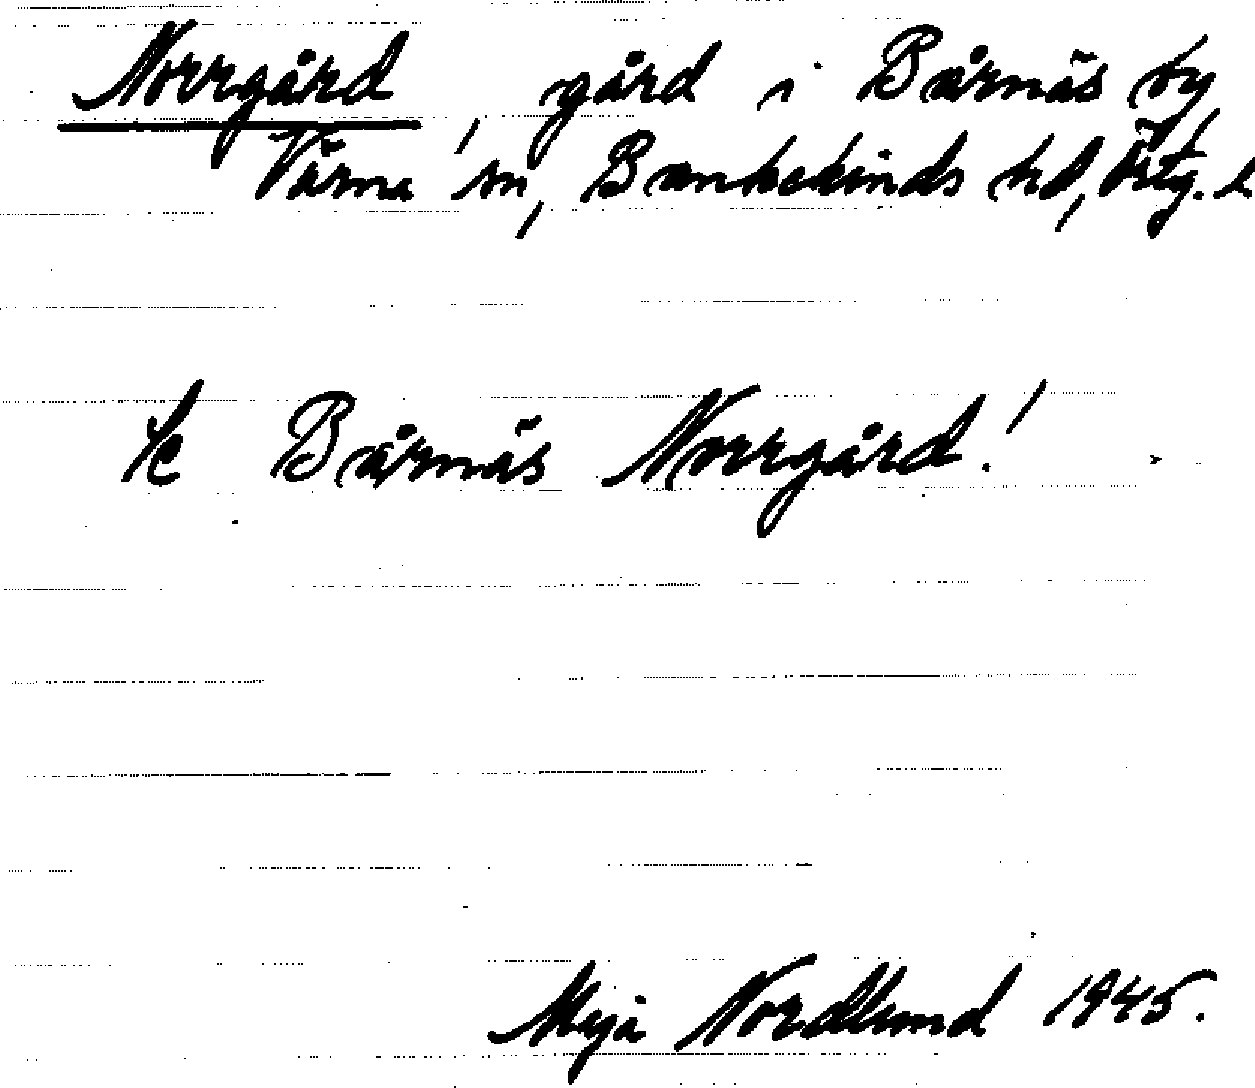 Norrgård, gård i Bårnäs by
Värna sn, Bankekinds hd, Östg. l
Se Bårnäs Norrgård!
Nordlund 1945.